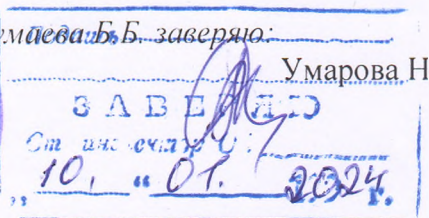 умаева Б.Б. заверяю:
Умарова Н
ЗАВЕРЯЮ
„ 10. “ 01. 2024 г.